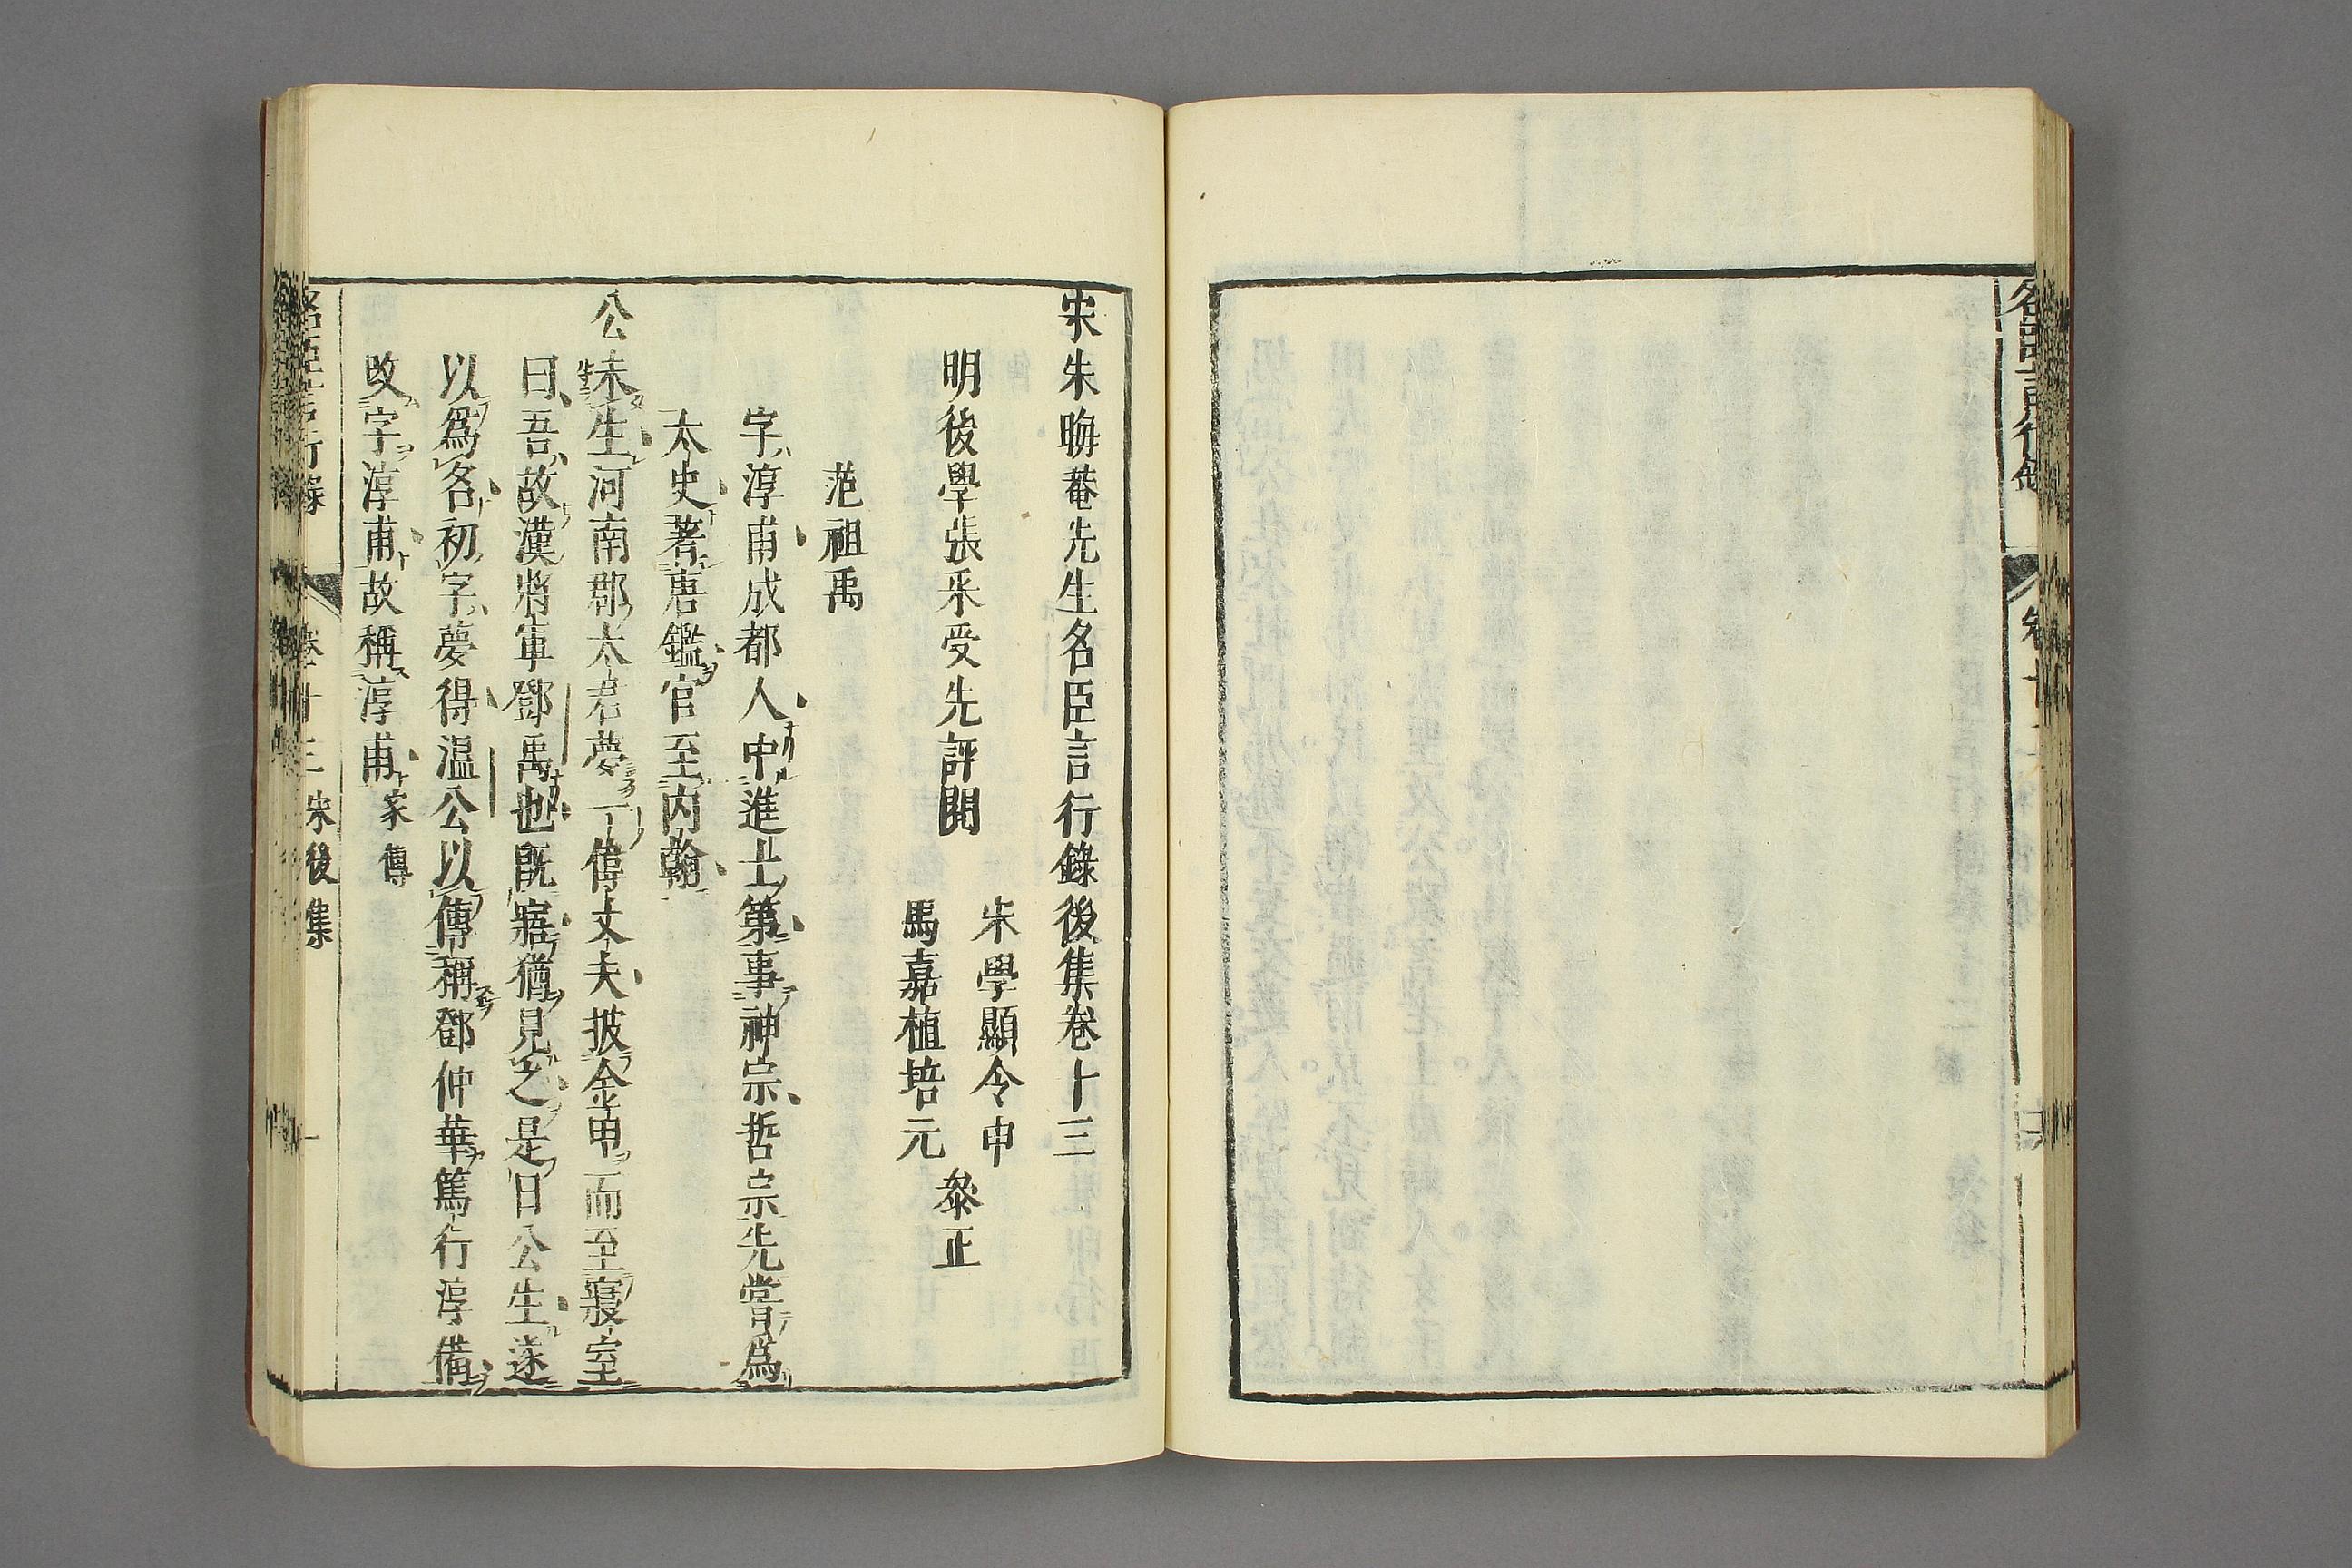 名臣言行錄
宋朱晦菴先生名臣言行錄後集卷十三
明後學張采受先評閱
宋學顯令申
馬嘉植培元
叅正
范祖禹
字淳甫成都人中進士第事神宗哲宗先嘗爲
太史著唐鑑官至内翰
公未生河南郡太君夢一偉丈夫披金甲而至寢室
曰吾故漢將軍鄧禹也既寤猶見之是日公生遂
以爲名初字夢得溫公以傳稱鄧仲華篤行淳備
改字淳甫故稱淳甫家傳
名臣言行錄 卷十三 宋後集 一